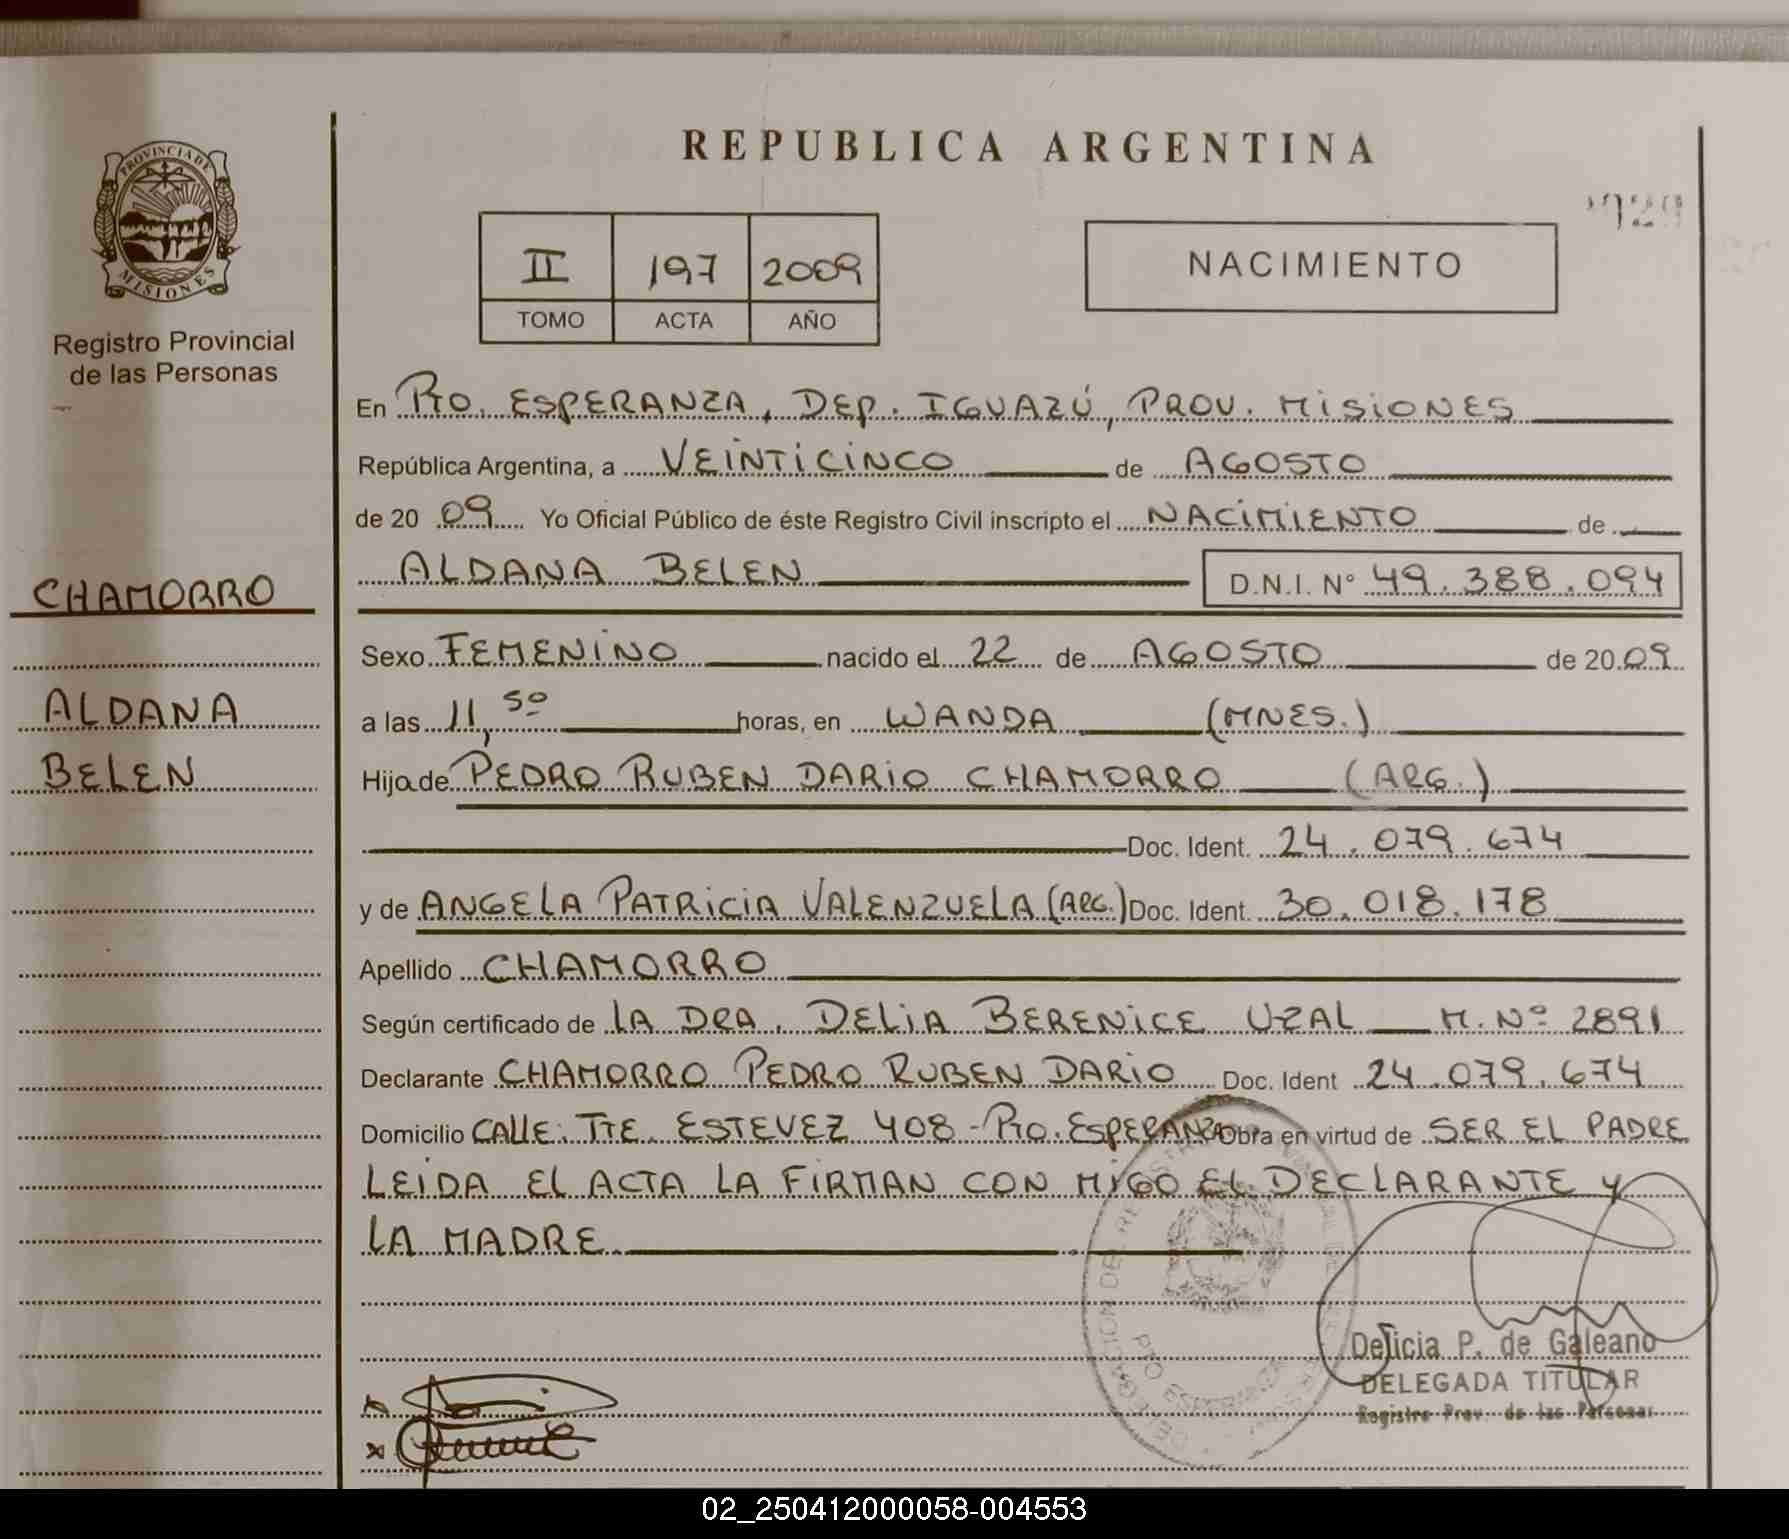 REPUBLICA ARGENTINA
PROVINCIA DE
MISIONES
Registro Provincial
de las Personas
II 197 2009
TOMO ACTA AÑO
NACIMIENTO
En Pto. ESPERANZA, DEP. IGUAZÚ, PROV. MISIONES
República Argentina, a VEINTICINCO de AGOSTO
de 20 09 Yo Oficial Público de éste Registro Civil inscripto el NACIMIENTO de
ALDANA BELEN D.N.I. N° 49.388.094
CHAMORRO
Sexo FEMENINO nacido el 22 de AGOSTO de 20 09
ALDANA
a las 11,50 horas, en WANDA (MNES.)
BELEN
Hija de PEDRO RUBEN DARIO CHAMORRO (ARG.)
Doc. Ident. 24.079.674
y de ANGELA PATRICIA VALENZUELA (ARG.) Doc. Ident. 30.018.178
Apellido CHAMORRO
Según certificado de LA DRA. DELIA BERENICE UZAL M. Nº 2891
Declarante CHAMORRO PEDRO RUBEN DARIO Doc. Ident 24.079.674
Domicilio CALLE: TTE. ESTEVEZ 408 - Pto. ESPERANZA Obra en virtud de SER EL PADRE
LEIDA EL ACTA LA FIRMAN CON MIGO EL DECLARANTE Y
LA MADRE.
PTO ESPERANZA
Delicia P. de Galeano
DELEGADA TITULAR
Registro Prov. de las Personas
02_250412000058-004553